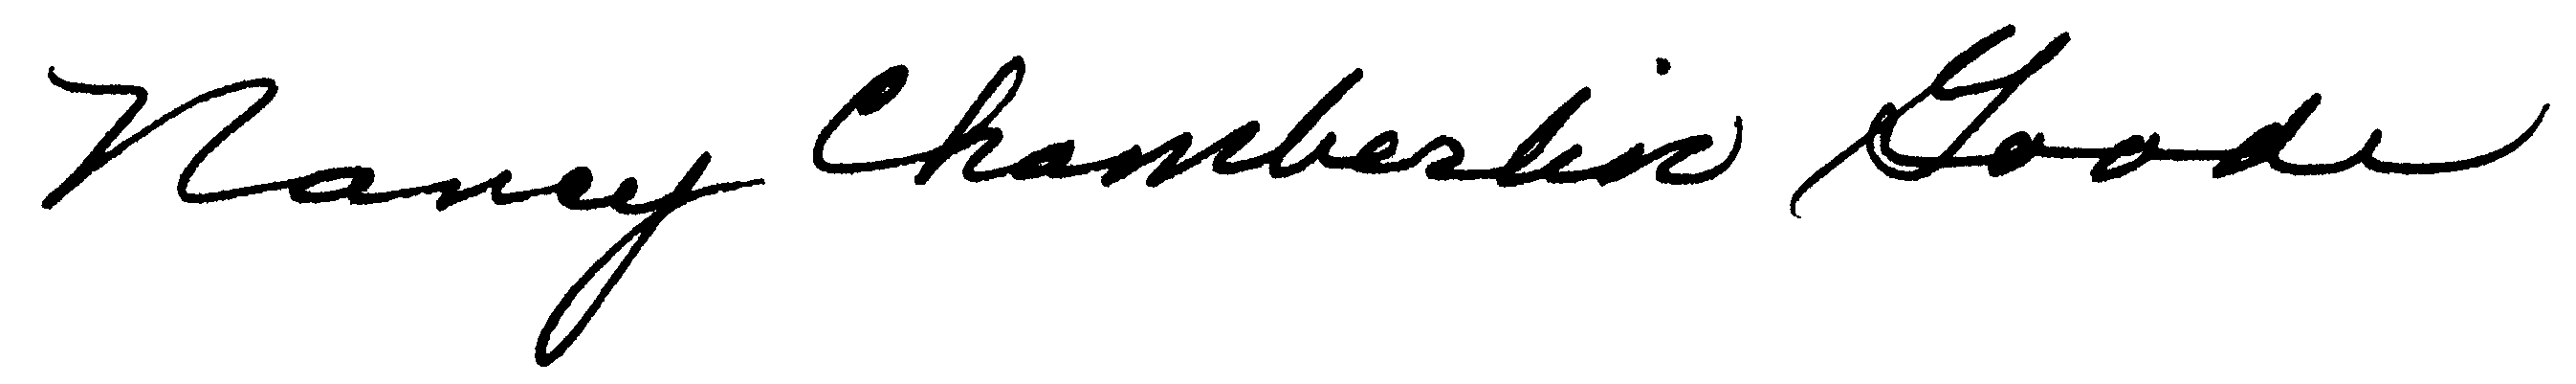 Nancy Chamberlin Goode